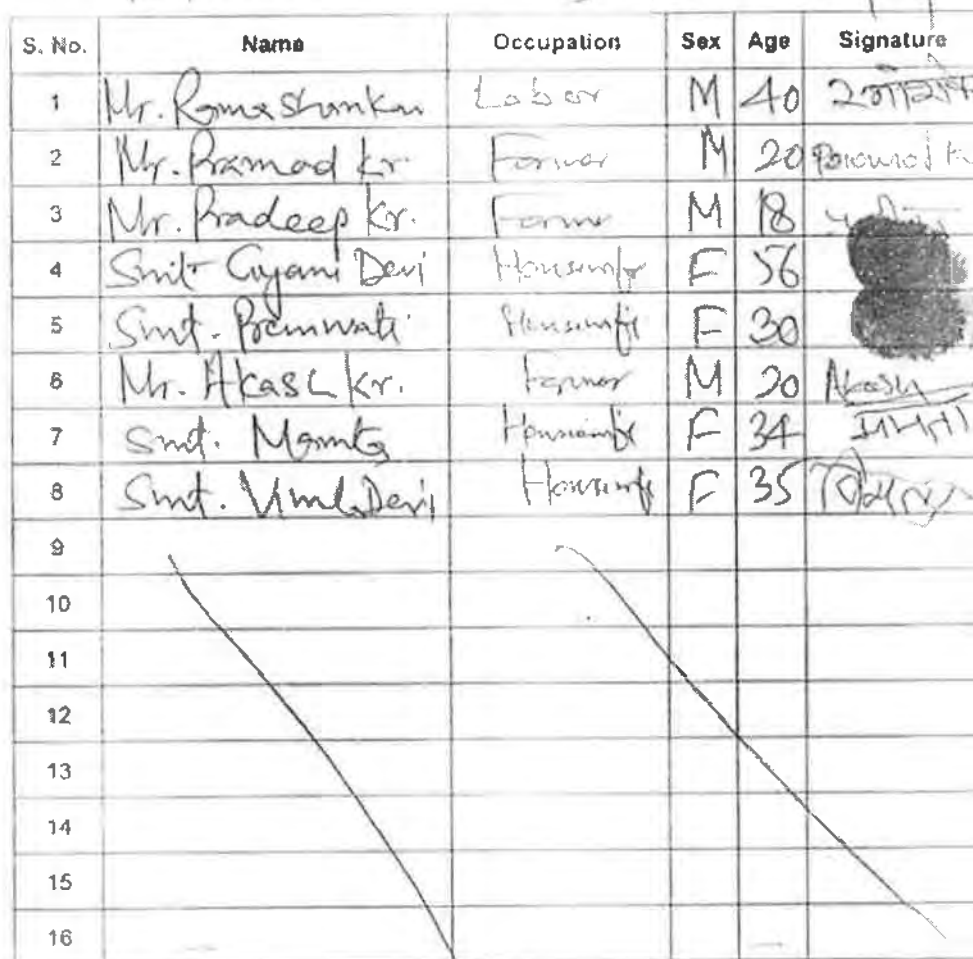 S. No. Name Occupation Sex Age Signature
1 Mr. Ramashankar Labor M 40
2 Mr. Pramod kr Farmer M 20 Pramod K
3 Mr. Pradeep kr. Farmer M 18
4 Smt Gyani Devi Housewife F 56
5 Smt. Premwati Housewife F 30
6 Mr. Akash kr. Farmer M 20 Akash
7 Smt. Mamta Housewife F 34 ममता
8 Smt. Vimla Devi Housewife F 35
9
10
11
12
13
14
15
16